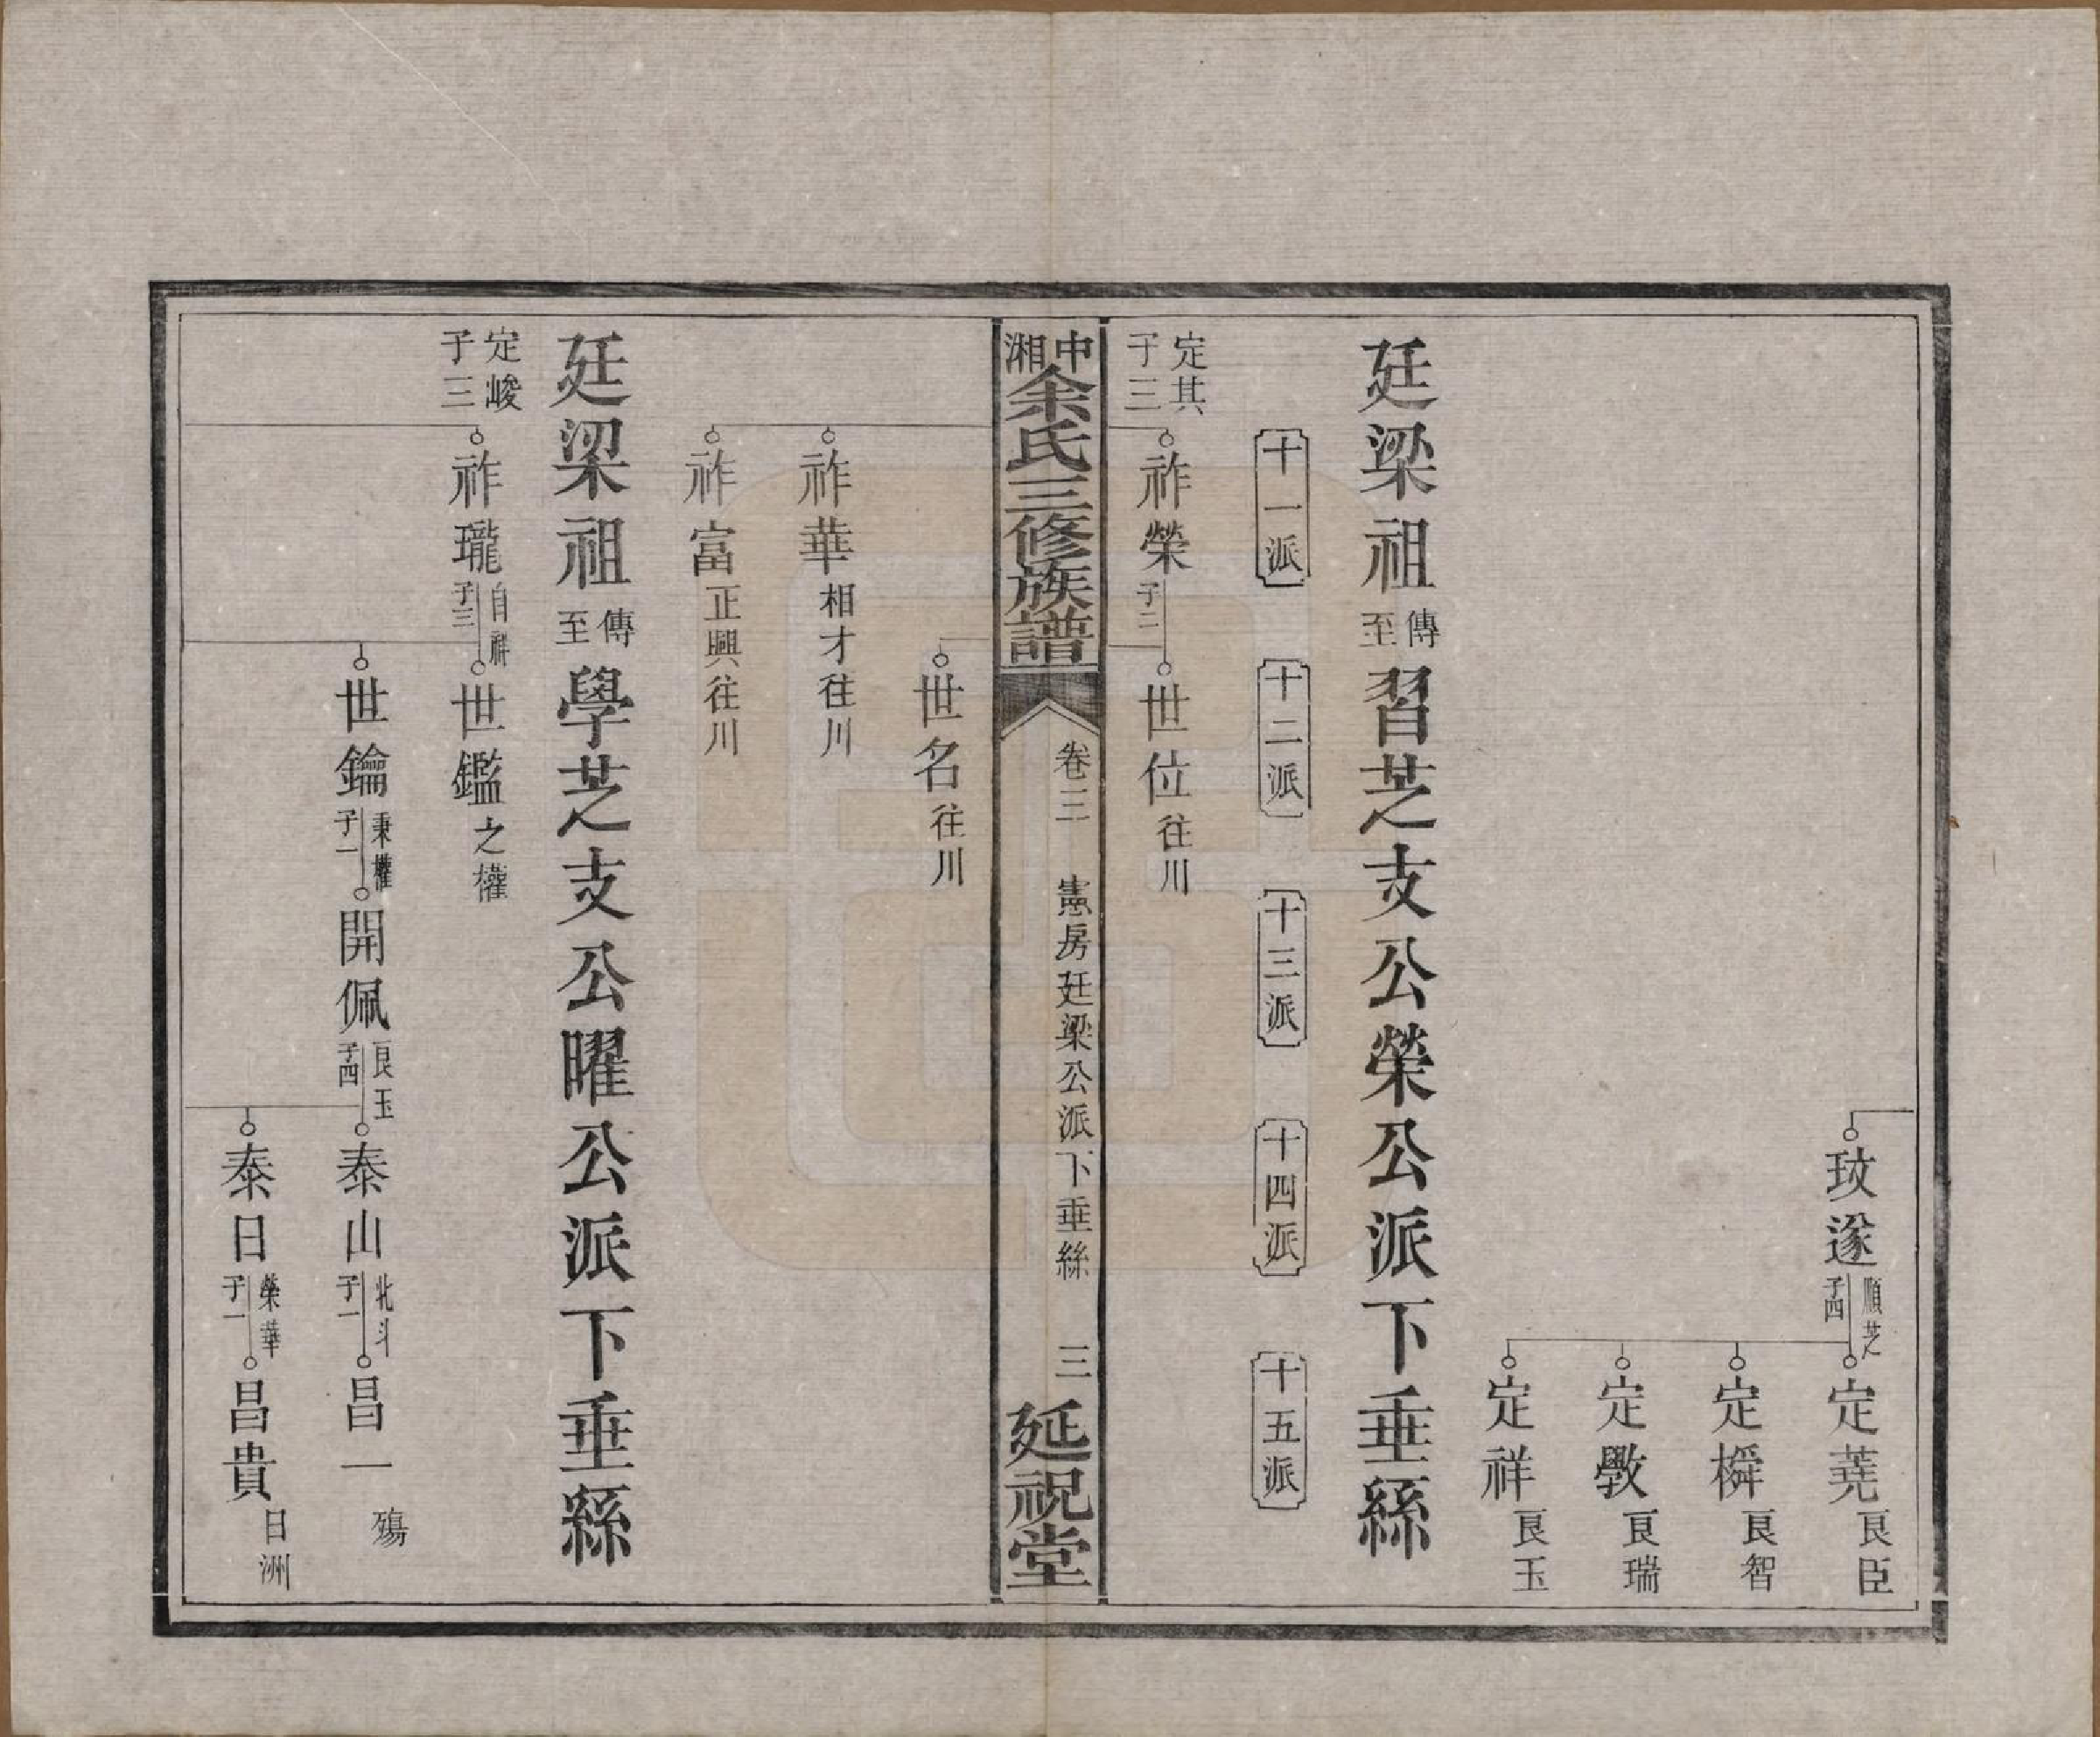 玟遂 順芝 子四
定蕘 良臣
定橓 良智
定斆 良瑞
定祥 良玉
廷梁祖傳至習芝支公榮公派下垂絲
十一派
十二派
十三派
十四派
十五派
定其 子三
祚榮 子二
世位 往川
中湘余氏三修族譜
卷三 憲房廷梁公派下垂絲 三
延祝堂
世名 往川
祚華 相才往川
祚富 正興往川
廷梁祖傳至學芝支公曜公派下垂絲
定峻 子三
祚瓏 自耕 子三
世鑑 之權
世鑰 秉權 子一
開佩 良玉 子四
泰山 北斗 子一
昌一 殤
泰日 榮華 子一
昌貴 日洲